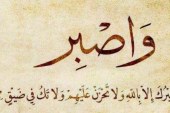 وَاصْبِر
صَبْرُكَ إِلَّا بِاللَّهِ وَلَا تَحْزَنْ عَلَيْهِمْ وَلَا تَكُ فِي ضَيْقٍ